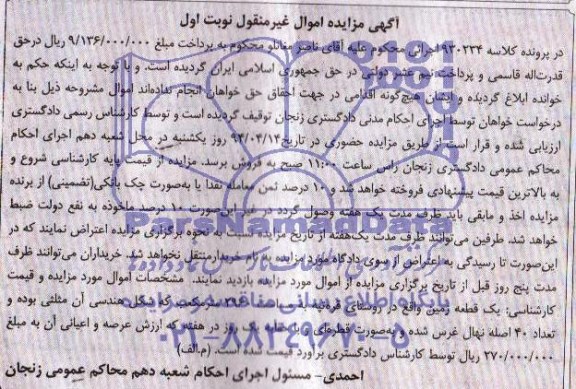 آگهی مزایده اموال غیرمنقول نوبت اول
در پرونده کلاسه ۹۳۰۲۳۴ اجرائی محکوم علیه آقای ناصر مغانلو محکوم به پرداخت مبلغ ۹/۱۳۶/۰۰۰/۰۰۰ ریال درحق
قدرت‌اله قاسمی و پرداخت نیم عشر دولتی در حق جمهوری اسلامی ایران گردیده است. و با توجه به اینکه حکم به
خوانده ابلاغ گردیده و ایشان هیچ‌گونه اقدامی در جهت احقاق حق خواهان انجام نداده‌اند اموال مشروحه ذیل بنا به
درخواست خواهان توسط اجرای احکام مدنی دادگستری زنجان توقیف گردیده است و توسط کارشناس رسمی دادگستری
ارزیابی شده و قرار است از طریق مزایده حضوری در تاریخ ۹۴/۰۳/۱۲ روز یکشنبه در محل شعبه دهم اجرای احکام
محاکم عمومی دادگستری زنجان راس ساعت ۱۱:۰۰ صبح به فروش برسد. مزایده از قیمت پایه کارشناسی شروع و
به بالاترین قیمت پیشنهادی فروخته خواهد شد و ۱۰ درصد ثمن معامله نقدا یا به‌صورت چک بانکی(تضمینی) از برنده
مزایده اخذ و مابقی باید ظرف مدت یک هفته وصول گردد در غیر این‌صورت ۱۰ درصد ماخوذه به نفع دولت ضبط
خواهد شد. طرفین می‌توانند ظرف مدت یک‌هفته از تاریخ مزایده نسبت به نحوه برگزاری مزایده اعتراض نمایند که در
این‌صورت تا رسیدگی به اعتراض از سوی دادگاه مورد مزایده به نام خریدار منتقل نخواهد شد. خریداران می‌توانند ظرف
مدت پنج روز قبل از تاریخ برگزاری مزایده از اموال مورد مزایده بازدید نمایند. مشخصات اموال مورد مزایده و قیمت
کارشناسی: یک قطعه زمین واقع در روستای که شکل هندسی آن مثلثی بوده و
تعداد ۴۰ اصله نهال غرس شده و به‌صورت قطره‌ای و با حقابه یک روز در هفته که ارزش عرصه و اعیانی آن به مبلغ
۲۷۰/۰۰۰/۰۰۰ ریال توسط کارشناس دادگستری برآورد قیمت شده است. (م.الف)
احمدی- مسئول اجرای احکام شعبه دهم محاکم عمومی زنجان
ParsNamadData
پایگاه اطلاع رسانی مناقصه و مزایده
۰۲۱-۸۸۳۴۹۶۷۰-۵